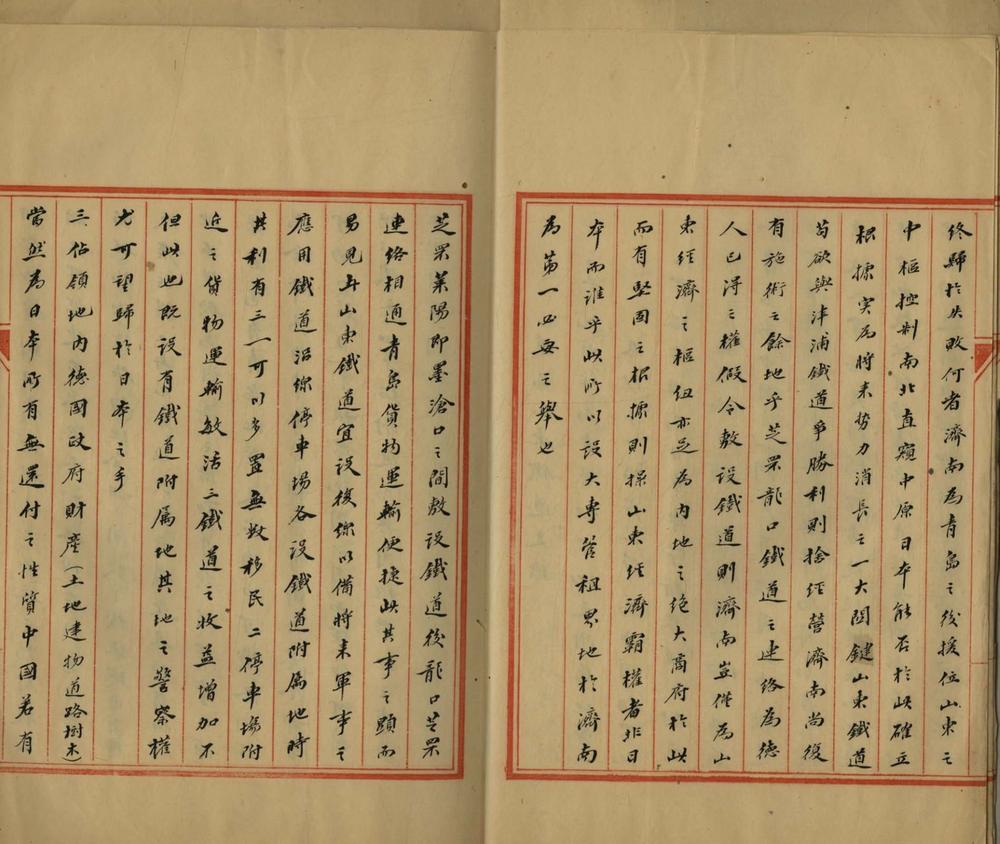 終歸於失敗何者濟南為青島之後援位山東之
中樞控制南北直窺中原日本能否於此確立
根據实為將来势力消長之一大関鍵山東鐵道
苟欲與津浦鐵道爭勝利則捨经營濟南尚復
有施術之餘地乎芝罘龍口鐵道之連络為德
人已得之權假令敷設鐵道則濟南豈僅為山
東经濟之樞纽亦足為内地之绝大商府於此
而有堅固之根據則操山東经濟霸權者非日
本而誰乎此所以设大專管租界地於濟南
為第一必要之舉也
芝罘莱陽即墨滄口之間敷设鐵道後龍口芝罘
連络相通青島貨物運輸便捷此其事之顕而
易見且山東鐵道宜设復線以備將来軍事之
應用鐵道沿線停車場各设鐵道附属地時
其利有三一可以多置無数移民二停車場附
近之貨物運輸敏活三鐵道之收益增加不
但此也既设有鐵道附属地其地之警察權
尤可望歸於日本之手
三、佔領地内德國政府財產（土地建物道路樹木）
當然為日本所有無還付之性質中國若有